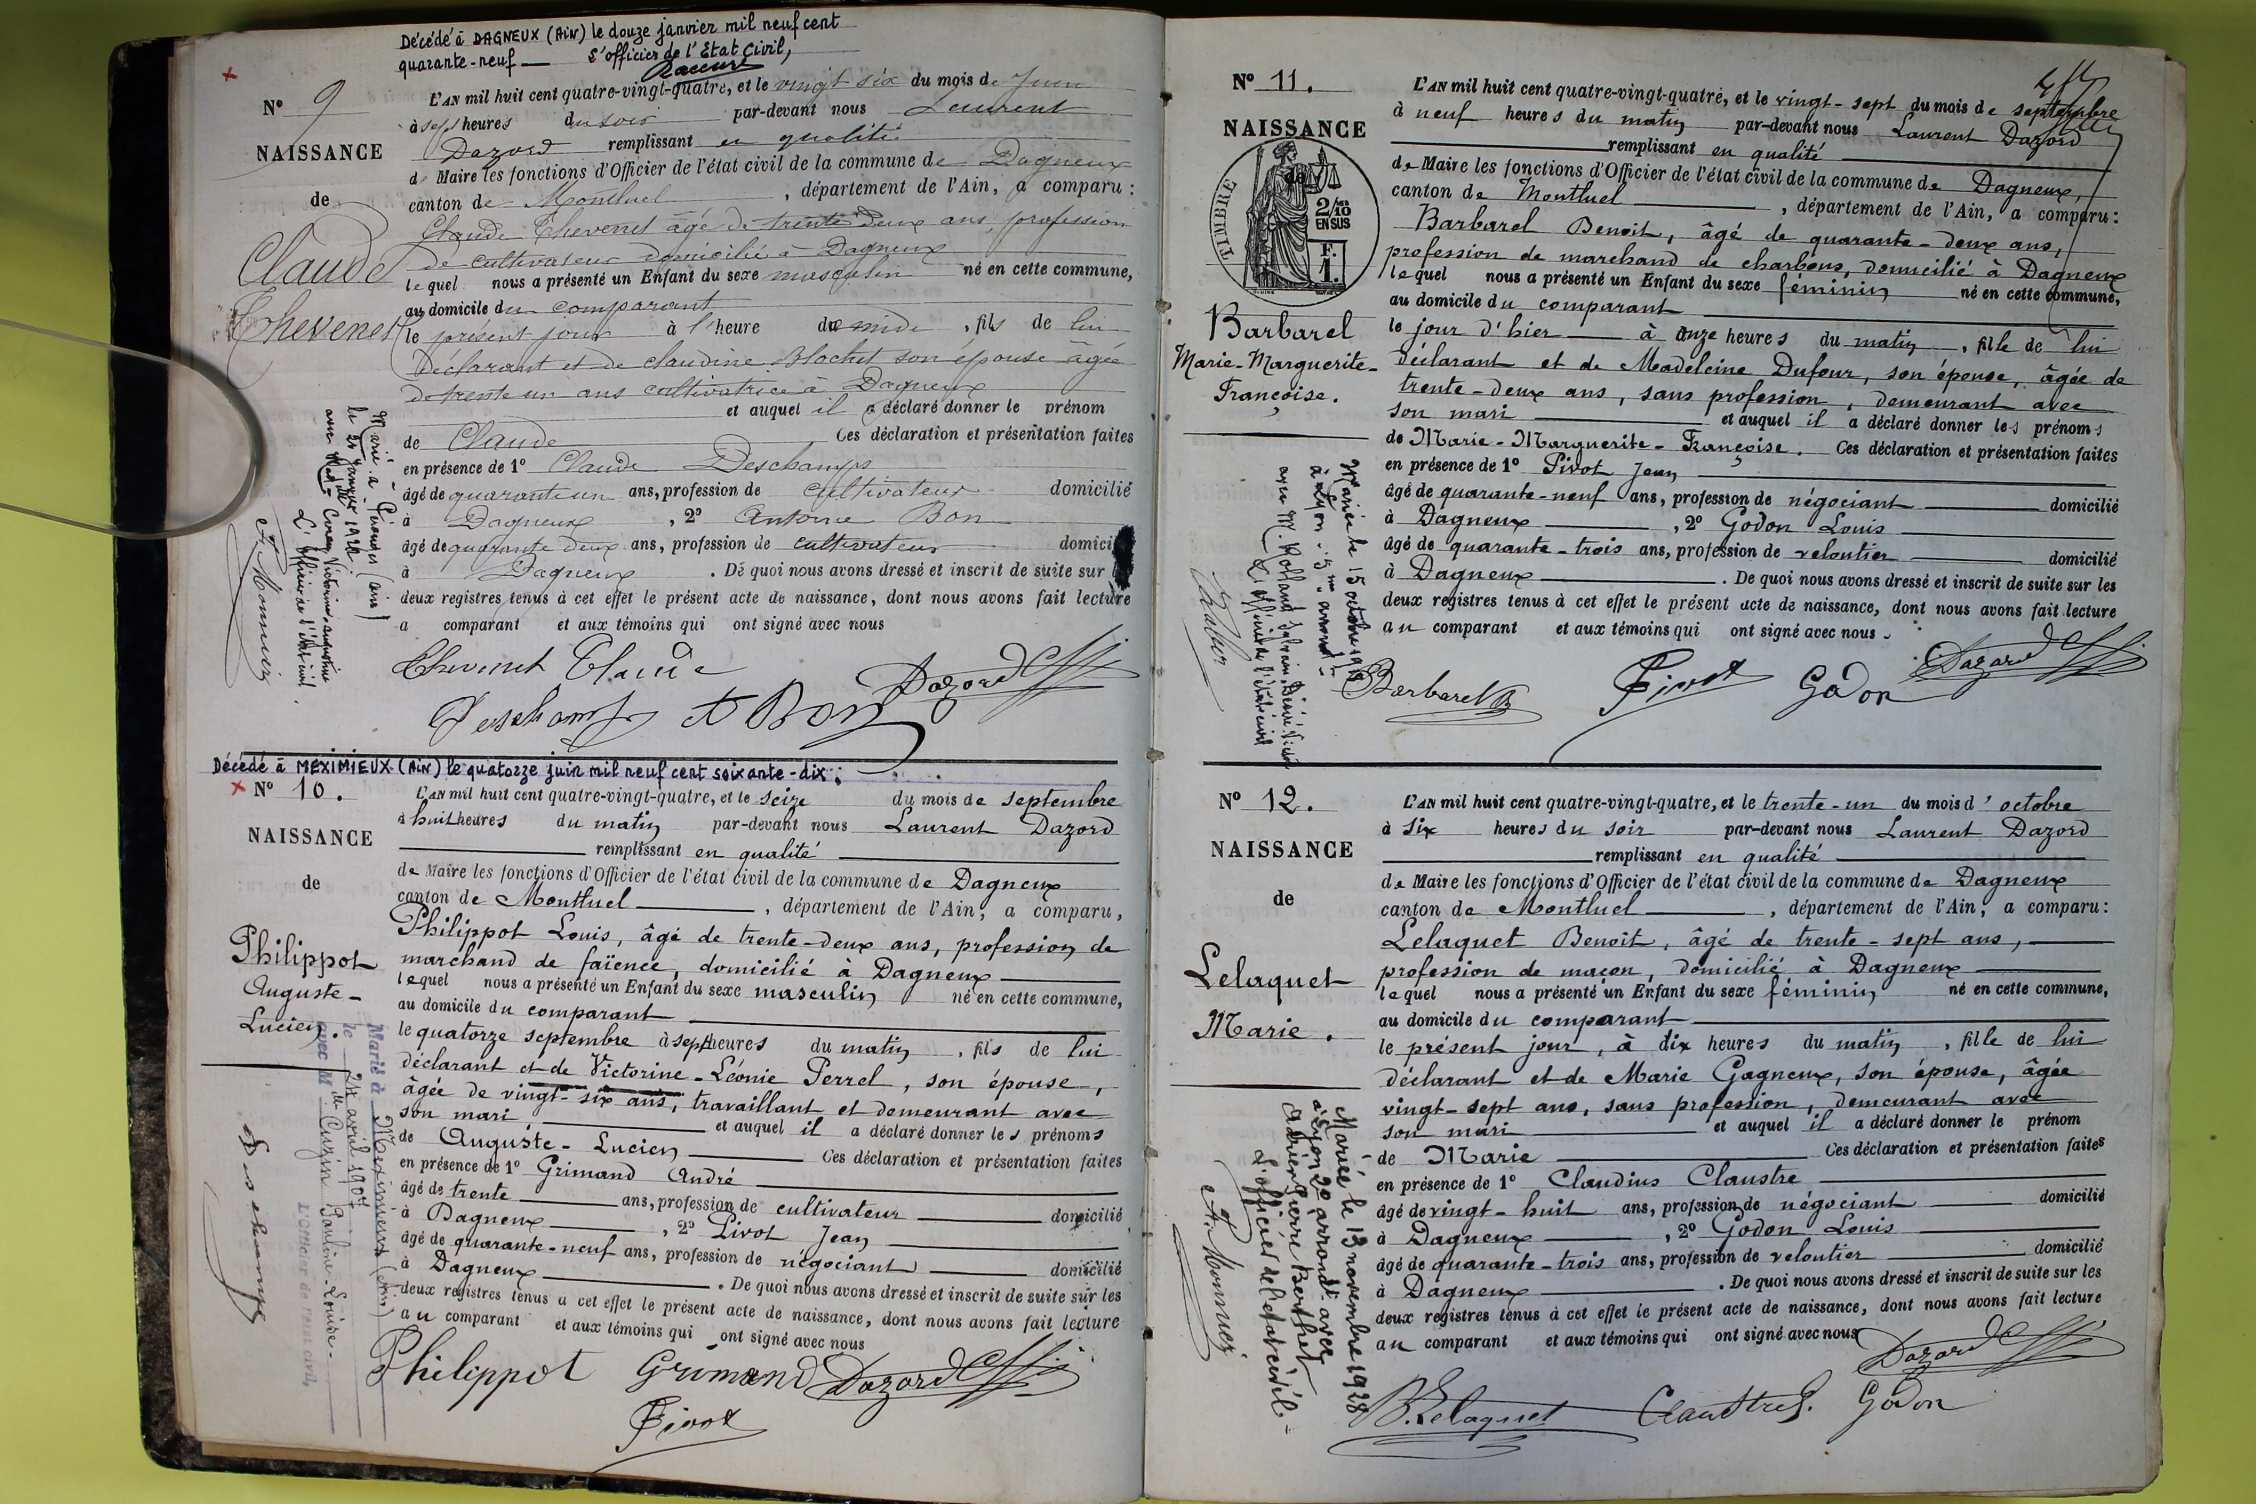 Décédé à DAGNEUX (Ain) le douze janvier mil neuf cent
quarante-neuf — L'officier de l'Etat Civil,
N° 9
NAISSANCE
de
Claude
Thevenet
L'AN mil huit cent quatre-vingt-quatre, et le vingt six du mois de Juin
à sept heures du soir par-devant nous Laurent
Dazord remplissant en qualité
de Maire les fonctions d'Officier de l'état civil de la commune de Dagneux
canton de Montluel, département de l'Ain, a comparu :
Claude Thevenet âgé de trente deux ans, profession
de cultivateur domicilié à Dagneux
lequel nous a présenté un Enfant du sexe masculin né en cette commune,
au domicile du comparant
le présent jour à l'heure de midi, fils de lui
déclarant et de claudine Blachet son épouse âgée
de trente un ans cultivatrice à Dagneux
et auquel il a déclaré donner le prénom
de Claude Ces déclaration et présentation faites
en présence de 1° Claude Deschamps
âgé de quarante un ans, profession de cultivateur domicilié
à Dagneux, 2° Antoine Bon
âgé de quarante deux ans, profession de cultivateur domici
à Dagneux. De quoi nous avons dressé et inscrit de suite sur
deux registres tenus à cet effet le présent acte de naissance, dont nous avons fait lecture
a comparant et aux témoins qui ont signé avec nous
Marié à Pérouges (Ain)
le 24 Janvier 1920
L'Officier de l'état civil.
A. Monnier
Thevenet Claude
Dazord
Deschamps A Bon
Décédé à MEXIMIEUX (Ain) le quatorze juin mil neuf cent soixante-dix ;
N° 10.
NAISSANCE
de
Philippot
Auguste-
Lucien.
L'AN mil huit cent quatre-vingt-quatre, et le seize du mois de septembre
à huit heures du matin par-devant nous Laurent Dazord
remplissant en qualité
de Maire les fonctions d'Officier de l'état civil de la commune de Dagneux
canton de Montluel, département de l'Ain, a comparu,
Philippot Louis, âgé de trente-deux ans, profession de
marchand de faïence, domicilié à Dagneux
lequel nous a présenté un Enfant du sexe masculin né en cette commune,
au domicile du comparant
le quatorze septembre à sept heures du matin, fils de lui
déclarant et de Victorine-Léonie Perrel, son épouse,
âgée de vingt-six ans, travaillant et demeurant avec
son mari et auquel il a déclaré donner les prénoms
de Auguste-Lucien Ces déclaration et présentation faites
en présence de 1° Grimand André
âgé de trente ans, profession de cultivateur domicilié
à Dagneux, 2° Pivot Jean
âgé de quarante-neuf ans, profession de négociant domicilié
à Dagneux. De quoi nous avons dressé et inscrit de suite sur les
deux registres tenus à cet effet le présent acte de naissance, dont nous avons fait lecture
au comparant et aux témoins qui ont signé avec nous
Marié à Meximieux (Ain)
le 24 avril 1907
avec Mlle Cuzin Pauline-Louise.
L'Officier de l'état civil,
Deschamps
Philippot Grimand Dazord
Pivot
N° 11.
NAISSANCE
de
TIMBRE
2/10 EN SUS
F. 1.
Barbarel
Marie-Marguerite-
Françoise.
L'AN mil huit cent quatre-vingt-quatre, et le vingt-sept du mois de septembre
à neuf heures du matin par-devant nous Laurent Dazord
remplissant en qualité
de Maire les fonctions d'Officier de l'état civil de la commune de Dagneux,
canton de Montluel, département de l'Ain, a comparu :
Barbarel Benoit, âgé de quarante-deux ans,
profession de marchand de charbons, domicilié à Dagneux
lequel nous a présenté un Enfant du sexe féminin né en cette commune,
au domicile du comparant
le jour d'hier à onze heures du matin, fille de lui
déclarant et de Madeleine Dufour, son épouse, âgée de
trente-deux ans, sans profession, demeurant avec
son mari et auquel il a déclaré donner les prénoms
de Marie-Marguerite-Françoise. Ces déclaration et présentation faites
en présence de 1° Pivot Jean
âgé de quarante-neuf ans, profession de négociant domicilié
à Dagneux, 2° Godon Louis
âgé de quarante-trois ans, profession de veloutier domicilié
à Dagneux. De quoi nous avons dressé et inscrit de suite sur les
deux registres tenus à cet effet le présent acte de naissance, dont nous avons fait lecture
au comparant et aux témoins qui ont signé avec nous.
Mariée le 15 octobre
à Lyon
L'officier de l'état civil
Barbarel B Pivot Godon Dazord
N° 12.
NAISSANCE
de
Lelaquet
Marie.
L'AN mil huit cent quatre-vingt-quatre, et le trente-un du mois d'octobre
à six heures du soir par-devant nous Laurent Dazord
remplissant en qualité
de Maire les fonctions d'Officier de l'état civil de la commune de Dagneux
canton de Montluel, département de l'Ain, a comparu :
Lelaquet Benoit, âgé de trente-sept ans,
profession de maçon, domicilié à Dagneux
lequel nous a présenté un Enfant du sexe féminin né en cette commune,
au domicile du comparant
le présent jour, à dix heures du matin, fille de lui
déclarant et de Marie Gagneux, son épouse, âgée
vingt-sept ans, sans profession, demeurant avec
son mari et auquel il a déclaré donner le prénom
de Marie Ces déclaration et présentation faites
en présence de 1° Claudius Claustre
âgé de vingt-huit ans, profession de négociant domicilié
à Dagneux, 2° Godon Louis
âgé de quarante-trois ans, profession de veloutier domicilié
à Dagneux. De quoi nous avons dressé et inscrit de suite sur les
deux registres tenus à cet effet le présent acte de naissance, dont nous avons fait lecture
au comparant et aux témoins qui ont signé avec nous
Mariée le 13 novembre 1928
à Lyon 2e arrondt avec
Adrien Pierre Berthet
L'officier de l'état civil-
A. Monnier
B. Lelaquet Claustre Godon Dazord